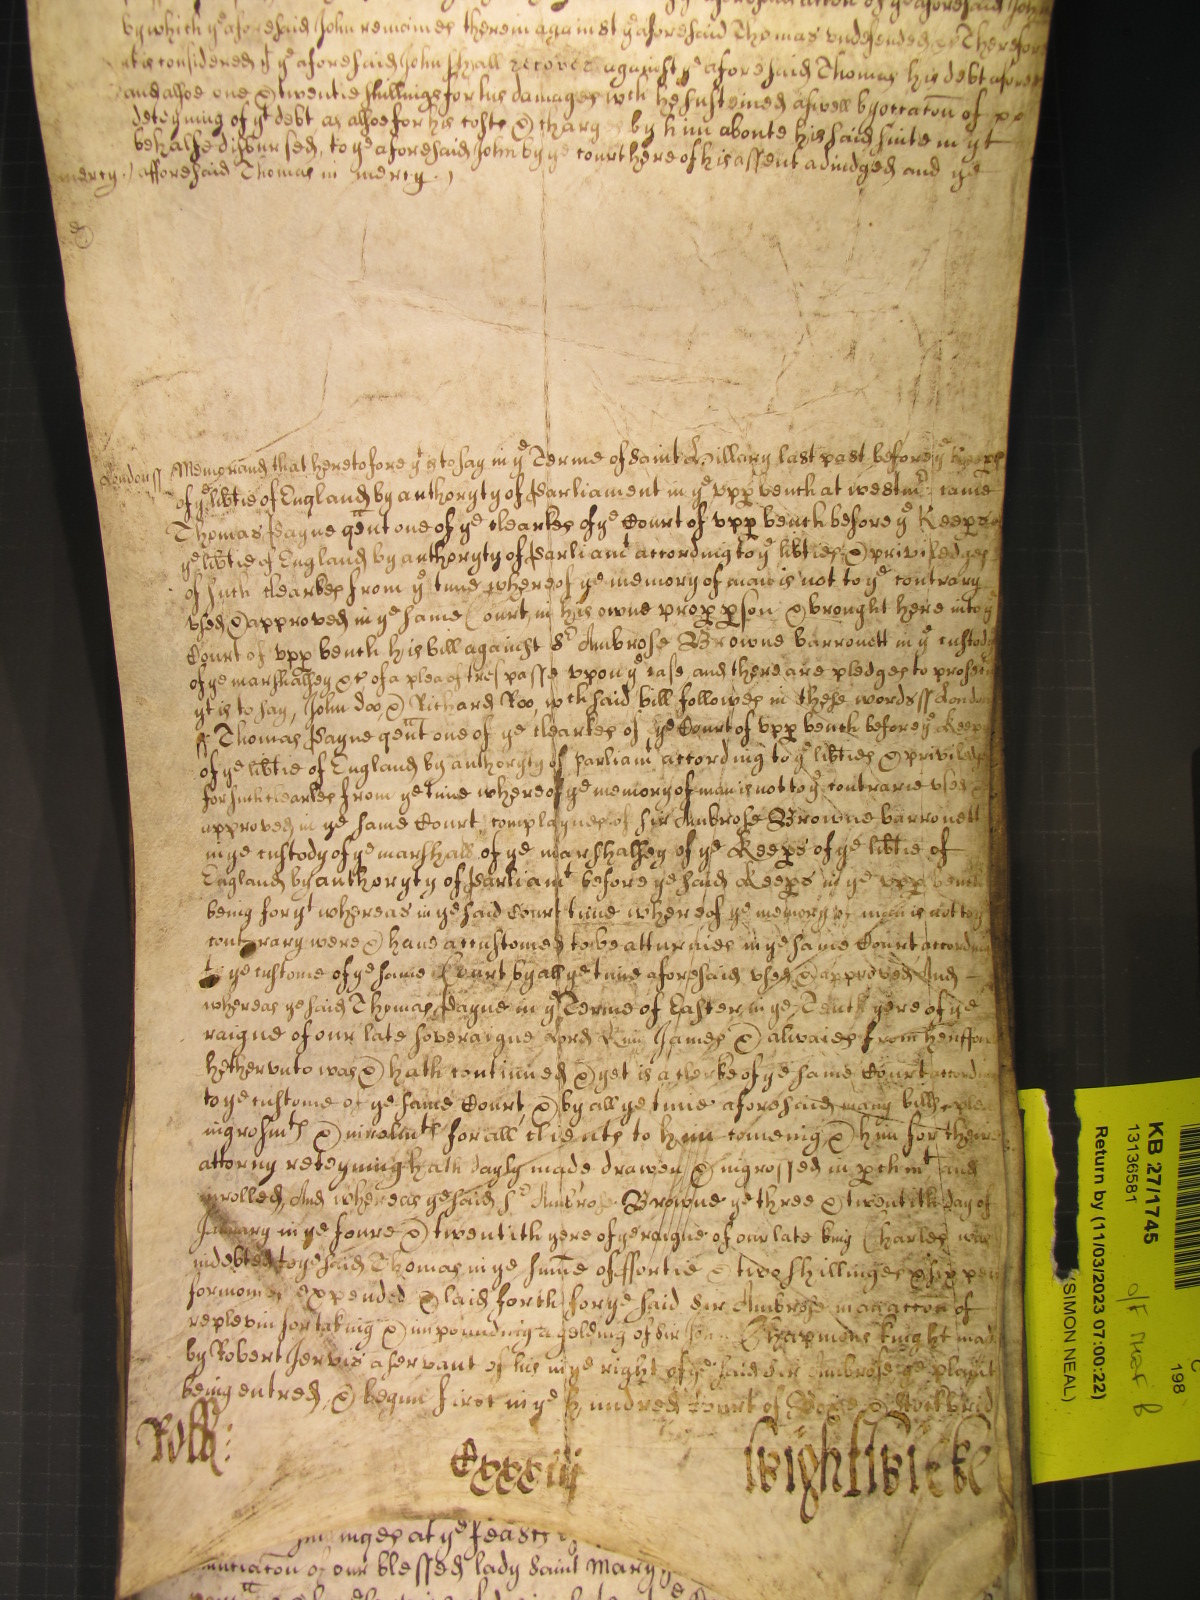 by which ye aforesaid John remaines therein against ye aforesaid Thomas vndefended, Therefore
it is considered yt ye aforesaid John shall recover against ye aforesaid Thomas his debt afore
and alsoe one & twentie shillings for his damages wch he susteined aswell by occacon of ye
deteyning of yt debt as alsoe for his costs & charges by him aboute his said suite in yt
behalfe disbursed, to ye aforesaid John by ye court here of his assent adiudged and ye
mercy. / afforesaid Thomas in mercy. /
London ss Memorand that heretofore yt is to say in ye Terme of Saint Hillary last past before ye Keeps
of ye libtie of England by authoryty of Parliament in ye vpp bench at westmr came
Thomas Payne gent one of ye clearkes of ye Court of vpp bench before ye Keeps of
ye libtie of England by authoryty of Parliamt according to ye libties & priviledges
of such clearkes from ye time whereof ye memory of man is not to ye contrary
vsed & approved in ye same Court, in his owne propp pson & brought here into ye
Court of vpp bench his bill against Sr Ambrose Browne barronett in ye custody
of ye marshalsey &c of a plea of trespasse vpon ye case, and there are pledges to prosecu
yt is to say, John doo & Richard Roo, wch said bill followes in these words ss London
ss Thomas Payne gent one of ye clearkes of ye Court of vpp bench before ye Keeps
of ye libtie of England by authoryty of parliamt according to ye libties & priviledg
for such clearkes from ye time whereof ye memory of man is not to ye contrarie vsed &
approved in ye same Court, complaynes of Sir Ambrose Browne barronett
in ye custody of ye marshall of ye marshalsey of ye Keeps of ye libtie of
England by authoryty of Parliamt before ye said Keeps in ye vpp bench
being for yt whereas in ye said Court time whereof ye memory of man is not to ye
contrary were & haue accustomed to be atturnies in ye same Court accordi
to ye custome of ye same Court by all ye time aforesaid vsed & approved And
whereas ye said Thomas Payne in ye Terme of Easter in ye Tenth yere of ye
raigne of our late soveraigne Lord King James & alwaies from henfforth
hethervnto was & hath continued & yet is a clerke of ye same Court accordi
to ye custome of ye same Court, & by all ye time aforesaid many bills plea
ingrosmts & inrolmts for all clients to him comeing & him for their
attorny reteyning hath dayly made drawen & ingrossed in pchmt and
inrolled, And whereas ye said Sr Ambrose Browne ye three & twentith day of
January in ye foure & twentith yere of ye raigne of our late king Charles was
indebted to ye said Thomas in ye summe of ffortie & two shillinges & six pen
for monies expended & laid forth for ye said Sir Ambrose in an accon of
replevin for taking & impounding a gelding of Sir Chapmens knight mad
by Robert Jervis a servant of his in ye right of ye said Sir Ambrose ye playnt
being entred, & begun first in ye hundred Court of &
Rolls: Cxxxiij Wightwicke
ye feast
nunciacon of our blessed lady Saint Mary
KB 27/1745
13136581
Return by (11/03/2023 07:00:22)
(SIMON NEAL)
198